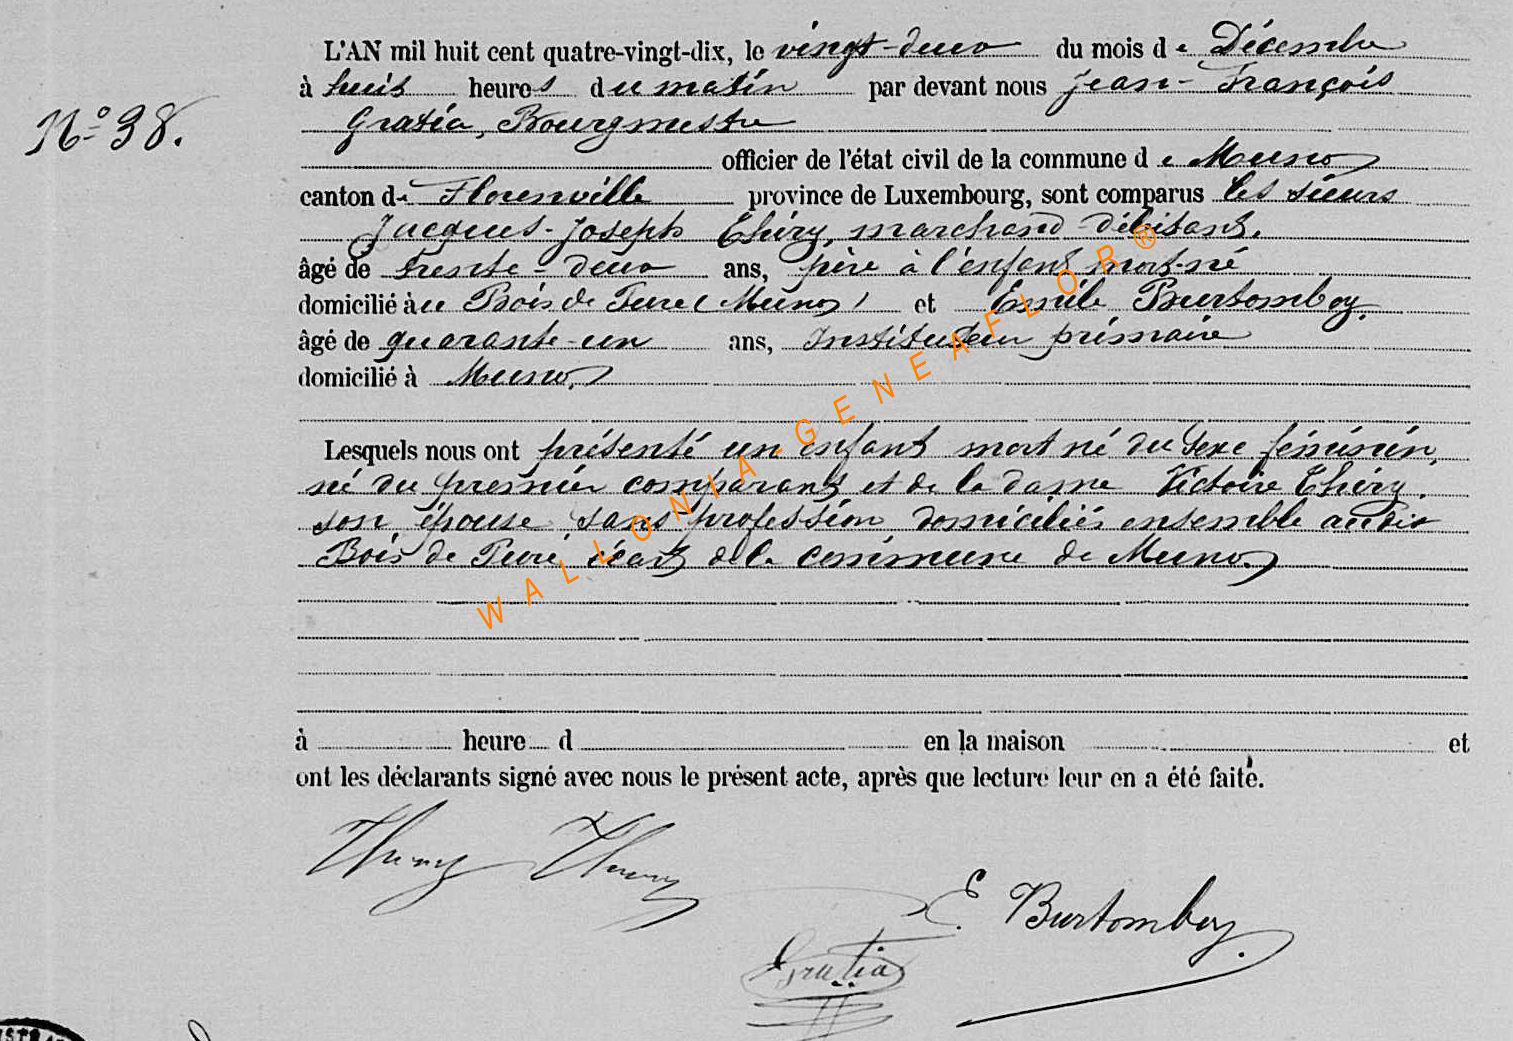 L'AN mil huit cent quatre-vingt-dix, le vingt-deux du mois de Décembre
à huit heures du matin par devant nous Jean-François
N° 38.
Gratia, Bourgmestre
officier de l'état civil de la commune de Muno
canton de Florenville province de Luxembourg, sont comparus les sieurs
Jacques-Joseph Thiry, marchand-débitant,
âgé de trente-deux ans, père à l'enfant mort-né
domicilié au Bois de (Muno) et Emile Burtomboy,
âgé de quarante-un ans, Instituteur primaire
domicilié à Muno,
Lesquels nous ont présenté un enfant mort né du sexe féminin,
né du premier comparant et de la dame Victoire Thiry,
son épouse sans profession domiciliés ensemble audit
Bois de écart de la commune de Muno.
à heure d en la maison et
ont les déclarants signé avec nous le présent acte, après que lecture leur en a été faite.
Thiry Thiry
E. Burtomboy.
Gratia
WALLONIA-GENEAFLOR®